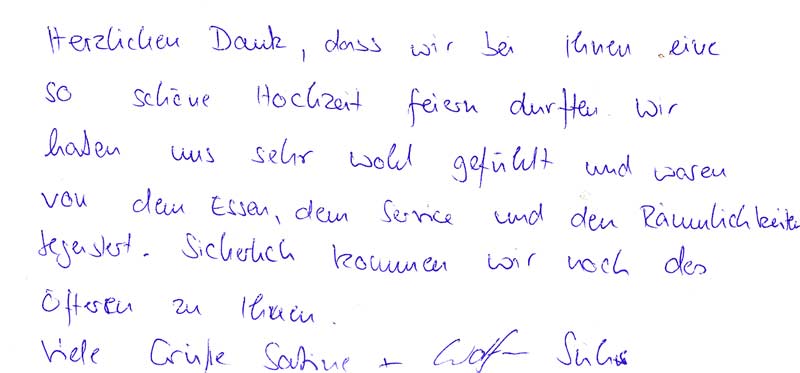 Herzlichen Dank, dass wir bei Ihnen eine
so schöne Hochzeit feiern durften. Wir
haben uns sehr wohl gefühlt und waren
von dem Essen, dem Service und den Räumlichkeiten
begeistert. Sicherlich kommen wir noch des
Öfteren zu Ihnen.
Viele Grüße Sabine +